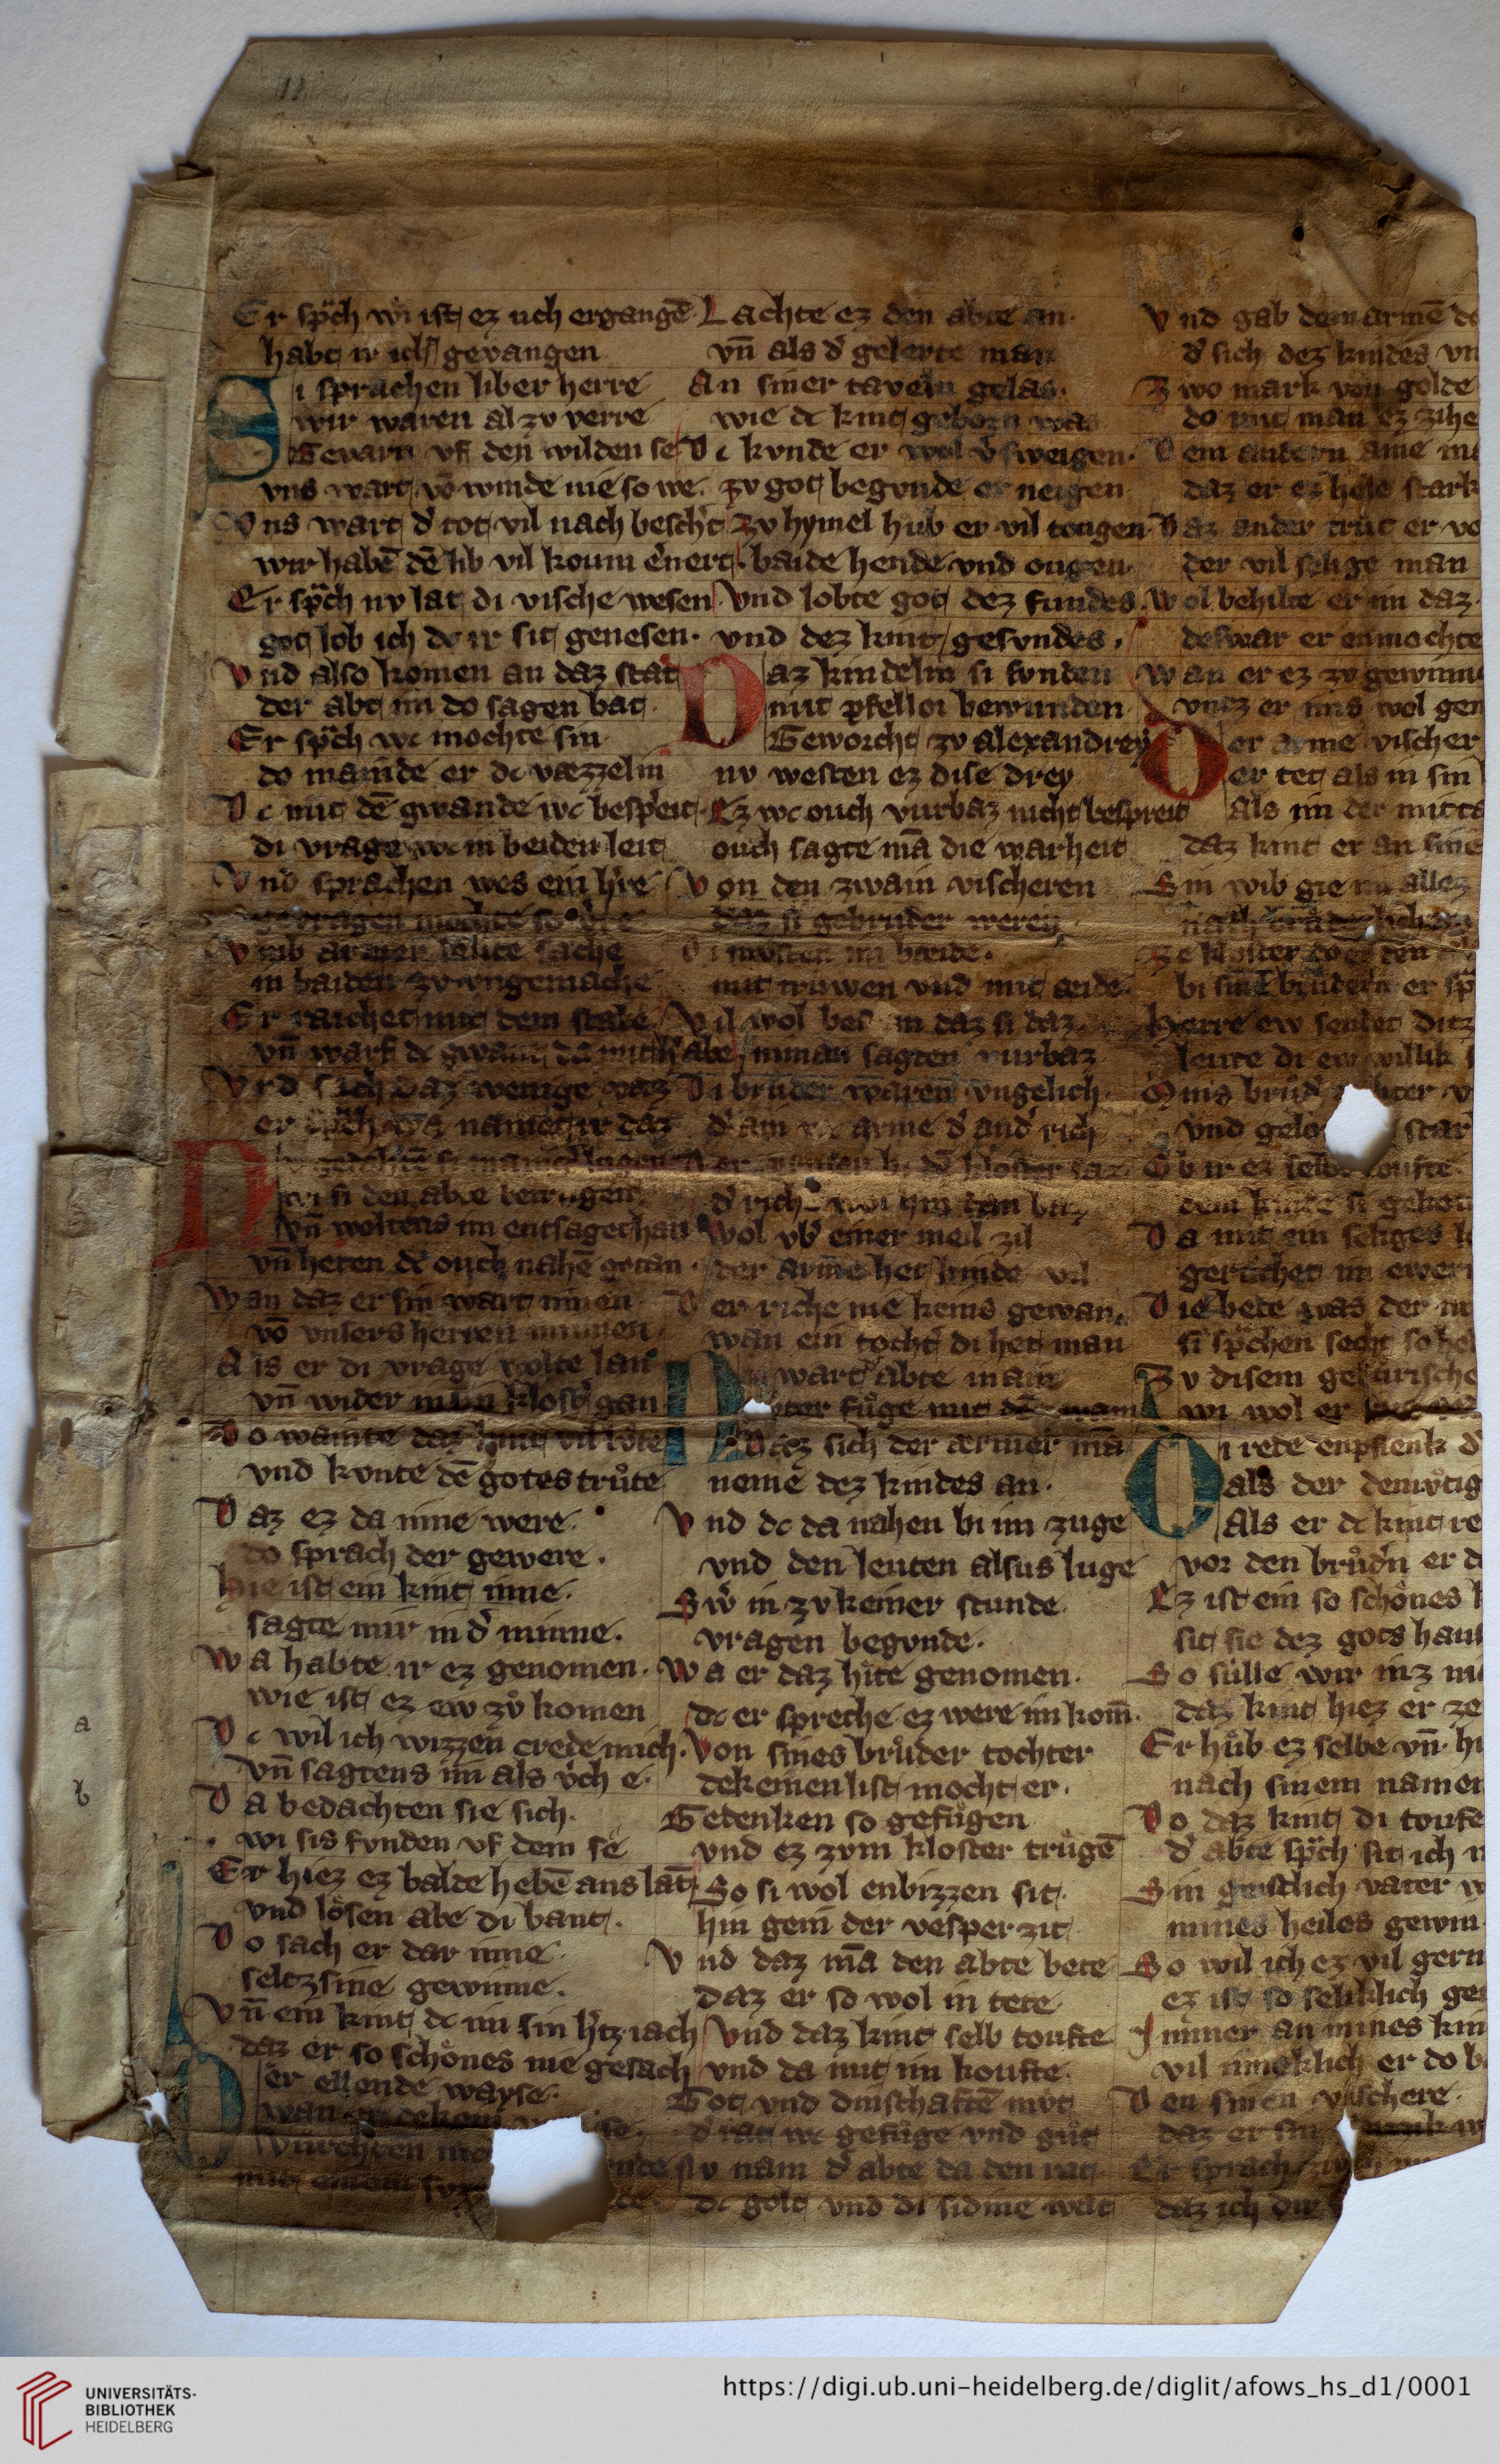 Er sp̈ch wi ist ez uch ergangē
habt ir icht gevangen
Si sprachen liber herre
wir waren al zv verre
Gevarn vf den wilden se
vns wart vō winde nie so we.
Vns wart d' tot vil nach besch't
wir habē dē lib vil koum e'nert.
Er sp̈ch nv lat di vische wesen
got lob ich dc ir sit genesen.
Vnd also komen an daz stat
der abt im do sagen bat.
Er sp̈ch wc mochte sin
do mainde er dc væzzelin
Dc mit dē gwande wc besp'eit.
di vrage wc in beiden leit
Vnd sprachen wes ein h're
gevragen mochte so v're
Vmb armer læute sache
in baiden zv vngemache
Er raichet mit dem stabe
vn̄ warf dc gwant da mit h'abe
Vnd sach daz wenige vaz
er sp̈ch wa namet ir daz
Nv gedahtē si manich' lugen
wi si den abte betrugen
vn̄ woltens im entsaget han
vn̄ heten dc ouch nahē getan.
Wan daz er sin wart innen
vō vnsers herren minnen.
Als er di vrage wolte lan
vn̄ wider in sin klost' gan
Do wainte daz kint vil lvte
vnd kvnte dē gotes trůte
Daz ez da inne were.
do sprach der gewere.
Hie ist ein kint inne.
sagte mir in d' minne.
Wa habte ir ez genomen.
wie ist ez ew zů komen
Dc wil ich wizzen crede mich.
vn̄ sagtens im als v'ch e.
Da bedachten sie sich.
wi sis fvnden vf dem se
Er hiez ez balde hebē ans lāt
vnd lösen abe di bant.
Do sach er dar inne
seltzsine gewinne.
Vn̄ ein kint dc im sin h'tz iach
daz er so schönes nie gesach
Der ellende wayse.
wan er dekein
wurchten
mit einem
Lachte ez den abte an.
vn̄ als d' gelerte man
An siner taveln gelas.
wie dc kint geborn was
Dc kvnde er wol v'sweigen.
zv got begvnde er neigen
Zv hymel hub er vil tougen
baide hende vnd ougen
Vnd lobte got dez fundes.
vnd dez kint gesvndes.
Daz kindelin si fvnden
mit pfelloi bewunden
Geworcht zv alexandrey
nv westen ez dise drey
Ez wc ouch vurbaz nicht bespreit
ouch sagte mā die warheit
Von den zwain vischeren
daz si gebruder weren
Di mvsten im baide.
mit triuwen vnd mit æide.
Vil wol bes in daz si daz
niman sagten vurbaz
Di brüder waren vngelich.
d' ain wc arme d' and' rich
d' rich
wol vb' einer meil zil
der arme het kinde vil
Der riche nie keins gewan.
wan ein tocht' di het man
Nv wart d' abte
fůge mit
Daz sich der ærmer mā
neme dez kindes an.
Vnd dc da nahen bi im zuge
vnd den leuten alsus luge
Sw' in zv keiner stunde
vragen begvnde.
Wa er daz hite genomen.
dc er spreche ez were im kom̄.
Von sines brůder tochter
dekeinen list mocht er.
Gedenken so gefůgen
vnd ez zvm kloster trůgē
So si wol enbizzen sit.
hin gein der vesper zit
Vnd daz mā den abte bete
daz er so wol in tete
Vnd daz kint selb toufte
vnd da mit im koufte.
Got vnd dinschaftē mvt
d' rat wc gefůge vnd gůt
Nv nam d' abte da den rat
dc golt vnd di sidine wat
Vnd gab dem armē
d' sich dez kindes vn
Zwo mark von golde
do mit man ez zihe
Dem andern aine
daz er ez hele stark
Daz ander trůc er
der vil selige man
Wol behilte er im daz.
deswar er enmochte
Wan er ez zv gewinne
vntz er ims wol gen
Der arme vischer
er tet als in sin
Als im der mitta
daz kint er an sine
Sin wib gie mit allez
Ze kloster do er den
bi sinē brůdern er sp̈
Herre ew sendet ditz
leute di ew willik
Mins brůd'
vnd gelo star
Ob ir ez selbe toufte
dem kinde si gebot
Da mit ein seliges
geruchet im ewern
Die bete was der
si sp̈chen secht so
Zv disem geburische
wi wol er
Di rede enpfienk d'
als der demvtig
Als er dc kint re
vor den brůd'n er
Ez ist ein so schönes
sit sie dez gots haus
So sülle wir inz
daz kint hiez er ze
Er hůb ez selbe vn̄
nach sinem namen
Do daz kint di toufe
d' abte sp̈ch sit ich
Sin geistlich vater
mines heiles gewin
So wil ich ez vil gern
ez ist so seliklich
Immer an mines kin
vil inneklich er do
Den sinen vischere
daz er sin
Er sprach
daz ich dir
a
b
UNIVERSITÄTS-
BIBLIOTHEK
HEIDELBERG
https://digi.ub.uni-heidelberg.de/diglit/afows_hs_d1/0001